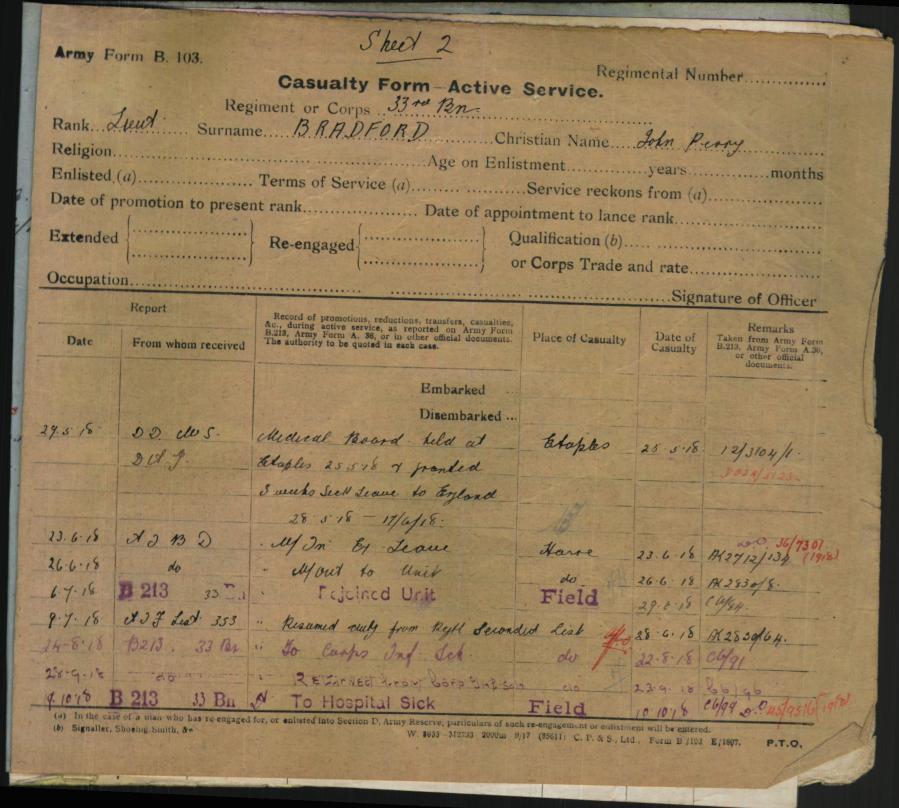 Sheet 2
Army Form B. 103.
Regimental Number
Casualty Form—Active Service.
Regiment or Corps 33rd Bn
Rank Lieut Surname BRADFORD Christian Name John Perry
Religion Age on Enlistment years months
Enlisted (a) Terms of Service (a) Service reckons from (a)
Date of promotion to present rank Date of appointment to lance rank
Extended Re-engaged Qualification (b)
or Corps Trade and rate
Occupation
Signature of Officer
Report
Date From whom received
Record of promotions, reductions, transfers, casualties, &c., during active service, as reported on Army Form B.213, Army Form A. 36, or in other official documents. The authority to be quoted in each case.
Place of Casualty
Date of Casualty
Remarks
Taken from Army Form B.213, Army Form A.36, or other official documents.
Embarked ...
Disembarked ...
29.5.18 D D M S. Medical Board held at Etaples 25.5.18 12/3104/1.
D A G Etaples 25.5.18 & granted
3 weeks Sick Leave to England
28.5.18 — 17/6/18.
23.6.18 A I B D M/In Ex Leave Havre 23.6.18 AK2712/134 36/7301 (1918)
26.6.18 do M/Out to Unit do 26.6.18 AK2830/8.
6.7.18 B 213 33 Bn Rejoined Unit Field 29.6.18 C6/84.
9.7.18 A I F List 353 Resumed duty from Regtl Seconded List 28.6.18 AK2830/64.
24-8-18 B213. 33 Bn To Corps Inf. Sch do 22-8-18 C6/91
28-9-18 do Returned from Corp Inf Sch do 23.9.18 C6/96
9.10.18 B 213 33 Bn To Hospital Sick Field 10.10.18 C6/99
(a) In the case of a man who has re-engaged for, or enlisted into Section D, Army Reserve, particulars of such re-engagement or enlistment will be entered.
(b) Signaller, Shoeing-Smith, &c
C. P. & S., Ltd., Form B/103 E/1607. P.T.O.